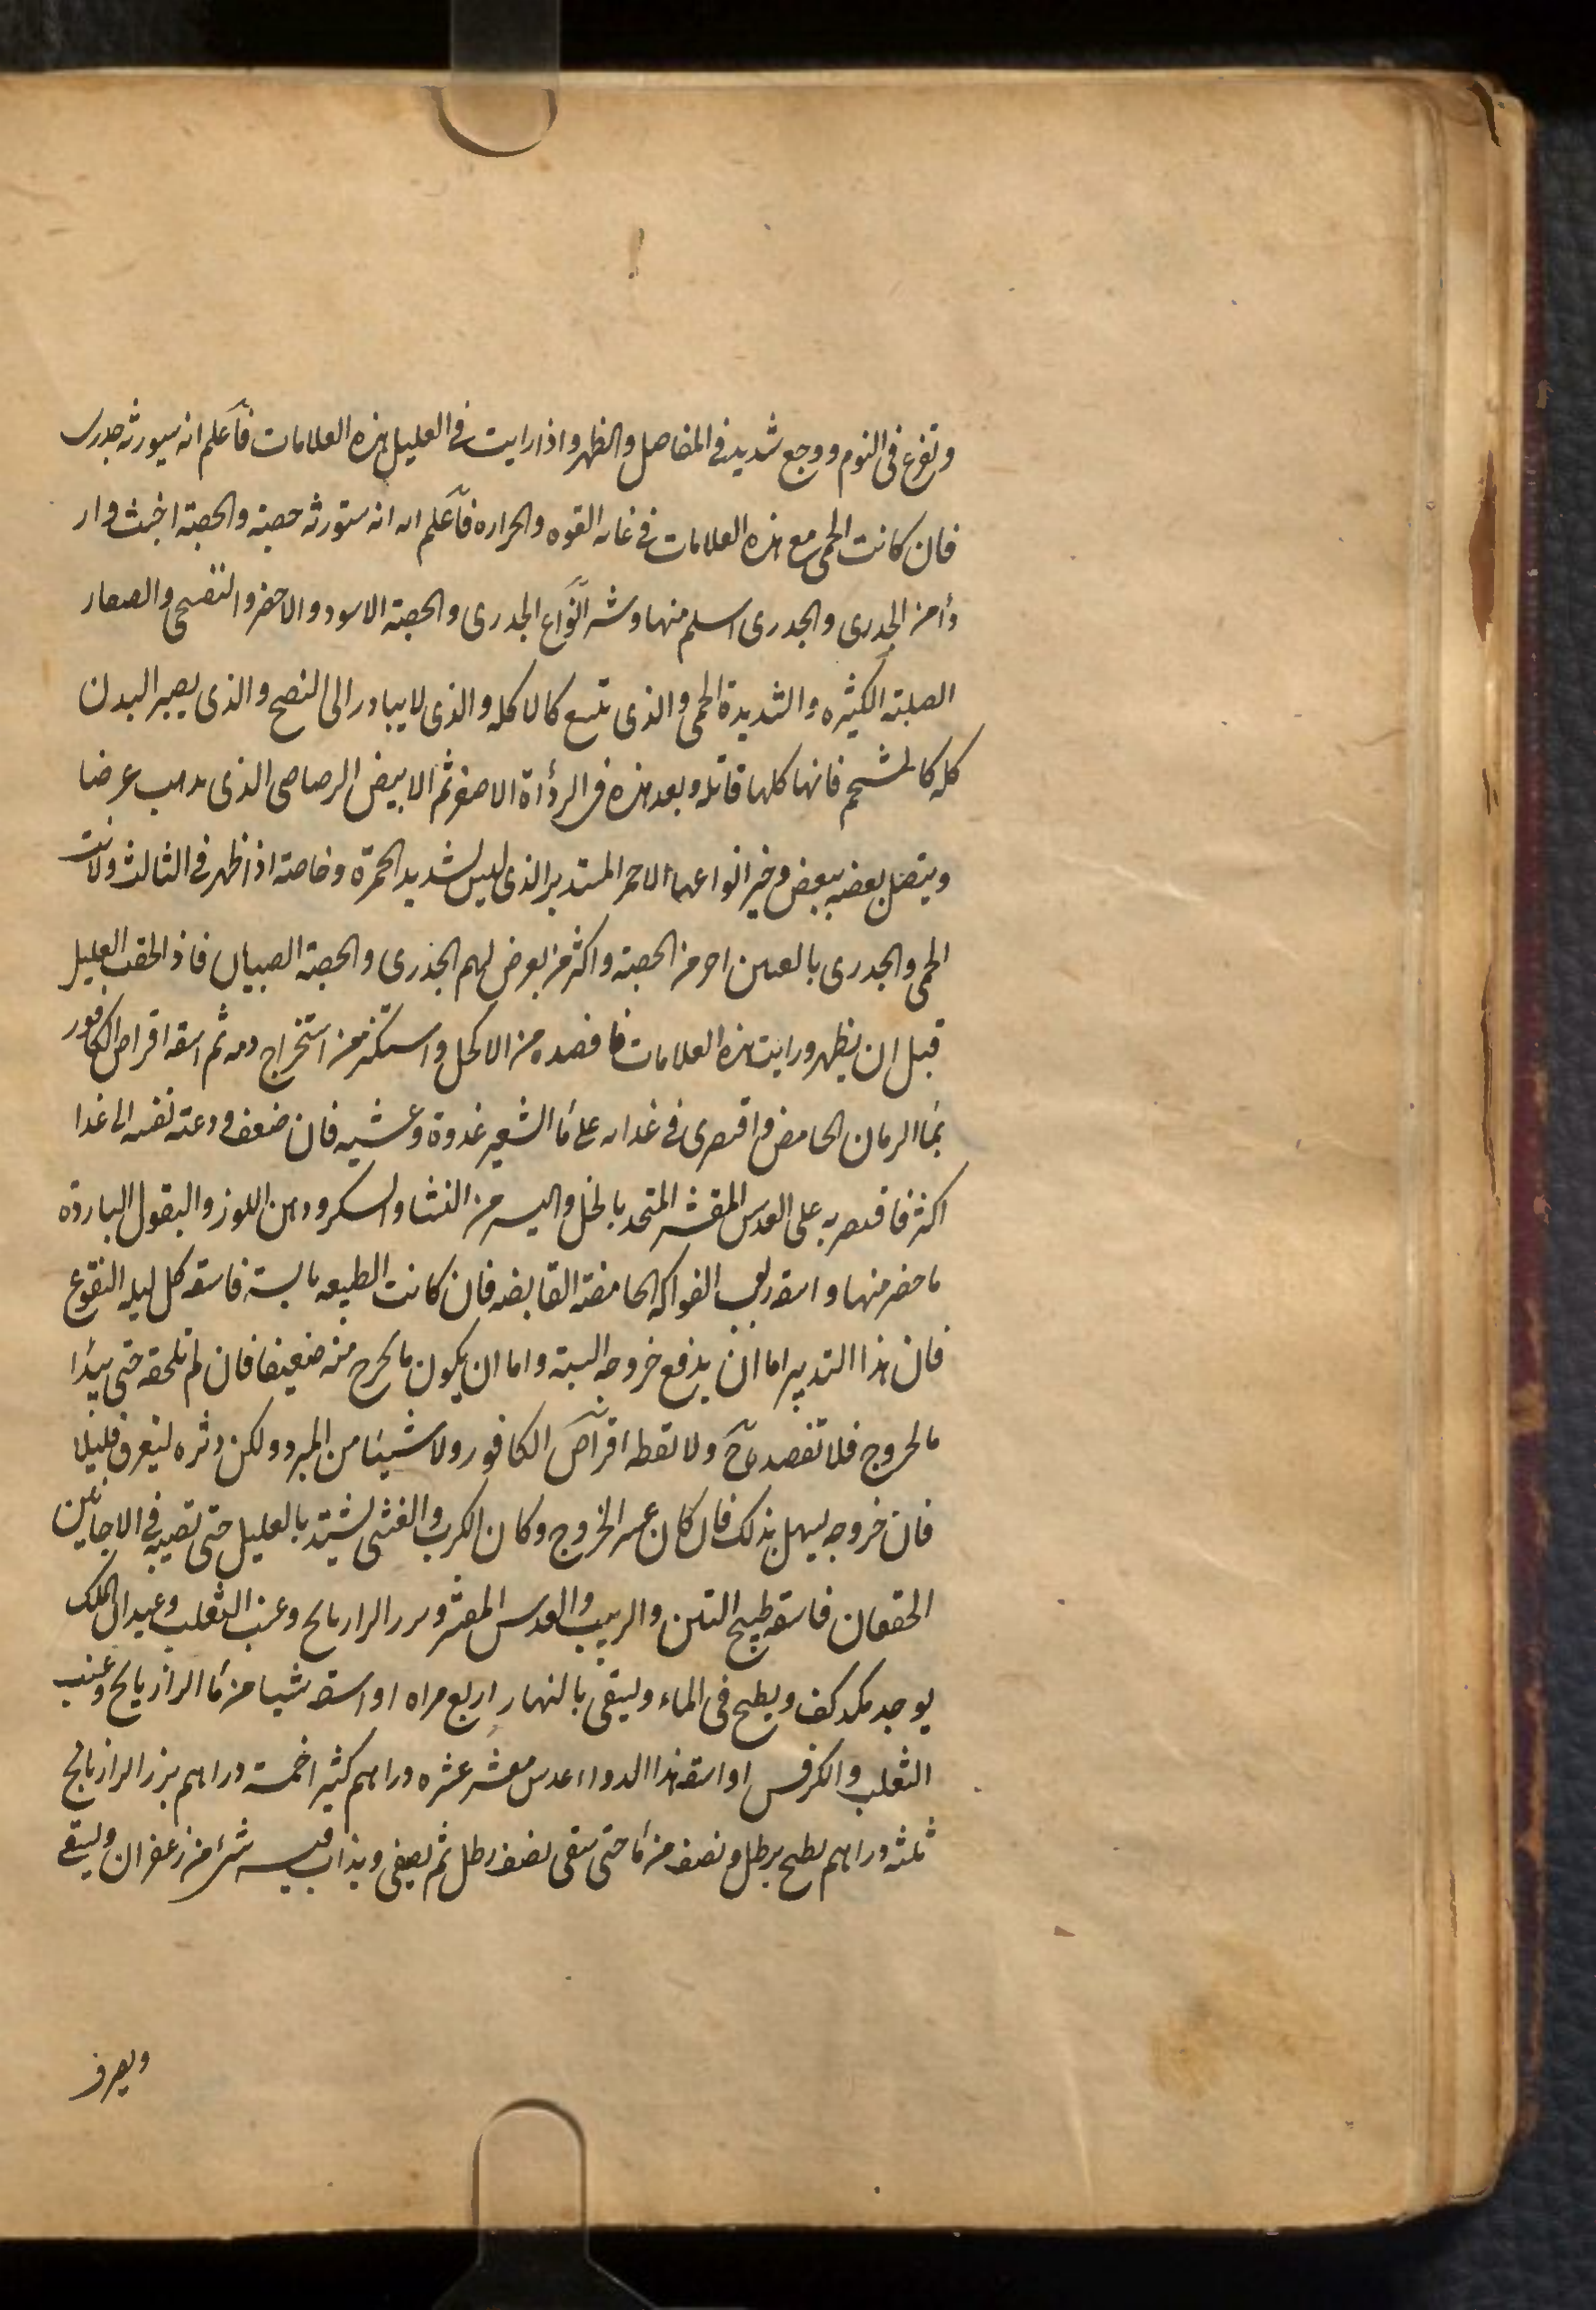 وتفزع فى النوم ووجع شديد فى المفاصل والظهر واذا رايت فى العليل هذه العلامات فاعلم انه سيورثه جدرى
فان كانت الحمى مع هذه العلامات فى غاية القوه والحراره فاعلم انه ستورثه حصبة والحصبة اخبث وار
دأ من الجدرى والجدرى اسلم منها وشر انواع الجدرى والحصبة الاسود والاخضر والبنفسجى والصغار
الصلبة الكثيره والشديدة الحمى والذى تتسع كالاكله والذى لا يبادر الى النضج والذى يصير البدن
كله كالمشحم فانها كلها قاتله وبعد هذه فى الرداة الاصفر ثم الابيض الرصاصى الذى يذهب عرضا
ويتصل بعضه ببعض وخير انواعها الاحمر المستدير الذى ليس بشديد الحمرة وخاصة اذا ظهر فى الثالث ولانت
الحمى والجدرى بالعين احر من الحصبة واكثر من يعرض لهم الجدرى والحصبة الصبيان فاذا لحقت العليل
قبل ان يظهر ورايت هذه العلامات فافصده من الاكحل واستكثر من استخراج دمه ثم اسقه اقراص الكافور
بماء الرمان الحامض واقتصرى فى غذائه على ماء الشعير غدوة وعشيه فان ضعف ودعته نفسه الى غذا
اكثر فاقتصر به على العدس المقشر المتخذ بالخل واليسير من النشا والسكر ودهن اللوز والبقول البارده
ما حضر منها واسقه ربوب الفواكه الحامضة القابضه فان كانت الطبيعه يابسة فاسقه كل ليله النقوع
فان هذا التدبير اما ان يدفع خروجه البتة واما ان يكون ما يخرج منه ضعيفا فان لم تلحقه حتى يبدا
بالخروج فلا تفصده ح ولا تعطه اقراص الكافور ولا شيئا من المبرد ولكن دثره ليعرق قليلا
فان خروجه يسهل بذلك فان كان عسر الخروج وكان الكرب والغشى يشتد بالعليل حتى تصيبه فى الاحايين
الخفقان فاسقه طبيخ التين والزبيب والعدس المقشر وبزر الرازيانج وعنب الثعلب وعيدان اللك
يوجد مكد كف ويطبخ فى الماء ويسقى بالنهار اربع مراه او اسقه شيئا من ماء الرازيانج وعنب
الثعلب والكرفس او اسقه هذا الدواء عدس مقشر عشره دراهم كثيرا خمسة دراهم بزر الرازيانج
ثلثه دراهم يطبخ برطل ونصف من ماء حتى يبقى نصف رطل ثم يصفى ويذاب فيه شئ من زعفران ويسقى
ويعرف